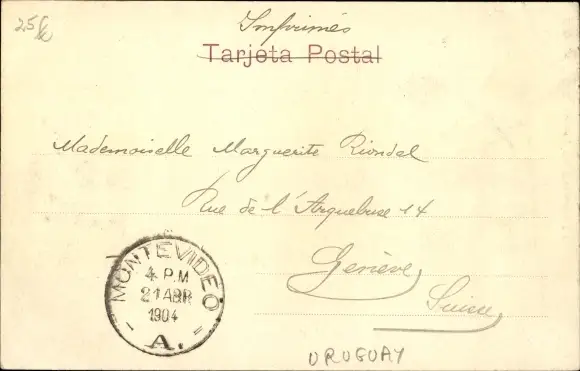 25
Imprimés
Tarjeta Postal
Mademoiselle Marguerite Riondel
Rue de l'Arquebuse 14
Genève
Suisse
MONTEVIDEO
4 P.M
21 ABR
1904
A.
URUGUAY